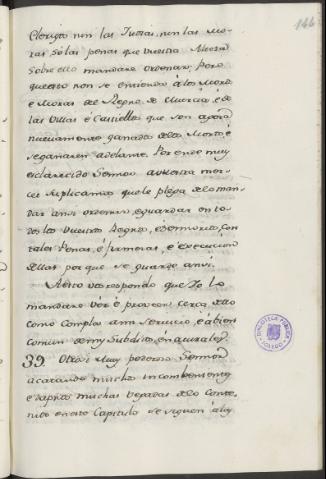 144
Clerigo nin las Judias, nin las Mo-
ras só las penas que vuestra Alteza
sobre ello mandare ordenar; Pero
que esto non se entienda á los Moros
é Moras del Regno de Murcia, é de
las Villas é Castiellos que son agora
nuevamente ganados de los Moros é
se ganaren adelante. Por ende muy
esclarecido Sennor a vuestra mer-
ced suplicamos que le plega de lo man-
dar ansi ordenar, é guardar en to-
dos los vuestros Regnos, é Sennorios, con
tales Penas, é firmezas, é execucion
dellas por que se guarde ansi.
A esto vos respondo que Yo lo
mandare ver é proveer cerca dello
como cumpla a mi servicio, é á bien
comun de my Subditos, é naturales.
39 Otrosi Muy poderoso Sennor
acatando muchos inconbenientes
é dapnos muchas vegadas de lo conte-
nido en este Capitulo se siguen á los
BIBLIOTECA PUBLICA
TOLEDO